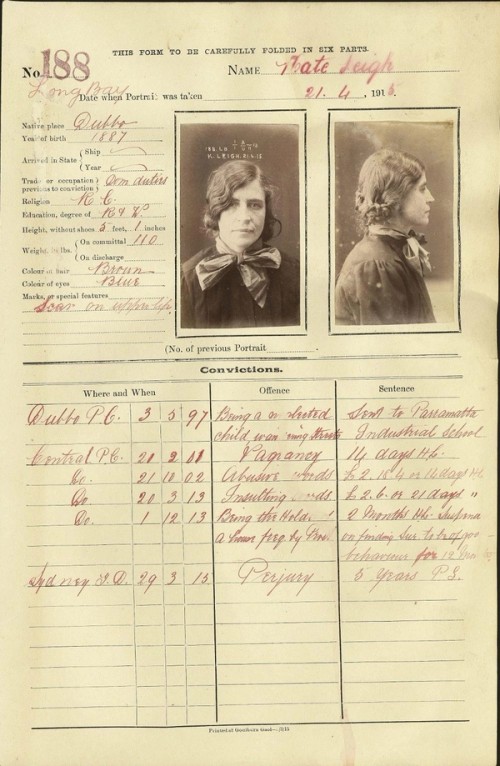 THIS FORM TO BE CAREFULLY FOLDED IN SIX PARTS.
No. 188 NAME Kate Leigh
Long Bay
Date when Portrait was taken 21. 4. 1915.
Native place Dubbo
Year of birth 1887
Arrived in State { Ship
{ Year
Trade or occupation } Dom duties
previous to conviction }
Religion R. C.
Education, degree of R & W.
Height, without shoes 5 feet, 1 inches
Weight in lbs. { On committal 110
{ On discharge
Colour of hair Brown
Colour of eyes Blue
Marks, or special features
Scar on upper lip
K. LEIGH. 21.4.15
(No. of previous Portrait
Convictions.
Where and When Offence Sentence
Dubbo P.C. 3 5 97 Being a neglected Sent to Parramatta
child wandering streets Industrial School
Central P.C. 20 2 01 Vagrancy 14 days H.L.
Do. 21 10 02 Abusive words
Do 20 3 13 Insulting words £2.6. or 21 days "
Do. 1 12 13 Being the Holder 2 Months HL Suspended
a house freq. by Pros. on finding Sur. to be of good
behaviour for 12 Mos
Sydney Q.D. 29 3 15 Perjury 5 Years P.S.